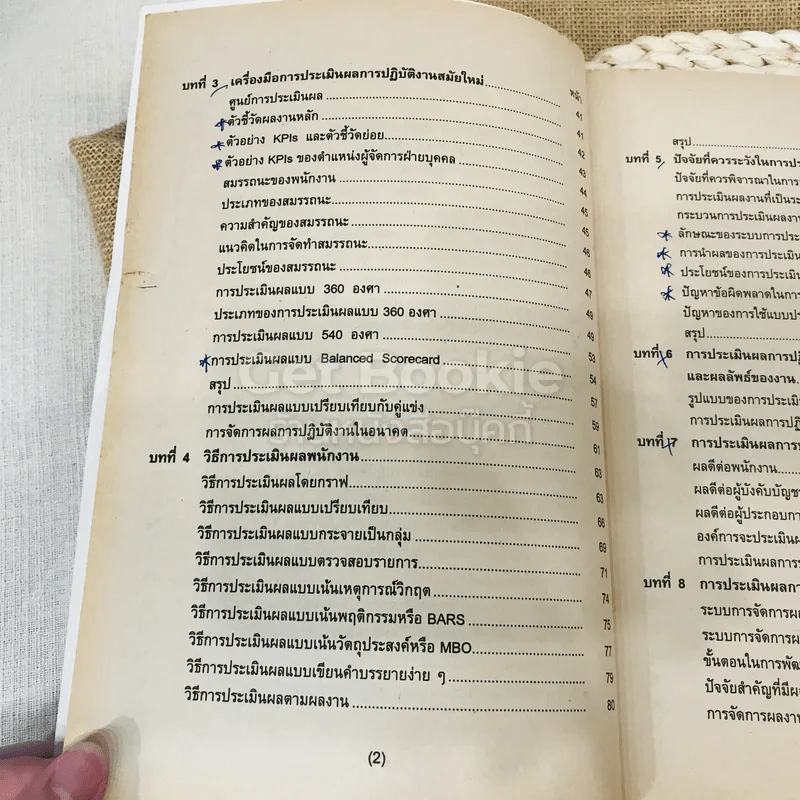 หน้า
บทที่ 3 เครื่องมือการประเมินผลการปฏิบัติงานสมัยใหม่ 41
ศูนย์การประเมินผล 41
ตัวชี้วัดผลงานหลัก 42
ตัวอย่าง KPIs และตัวชี้วัดย่อย 43
ตัวอย่าง KPIs ของตำแหน่งผู้จัดการฝ่ายบุคคล 44
สมรรถนะของพนักงาน 45
ประเภทของสมรรถนะ 45
ความสำคัญของสมรรถนะ 46
แนวคิดในการจัดทำสมรรถนะ 46
ประโยชน์ของสมรรถนะ 47
การประเมินผลแบบ 360 องศา 49
ประเภทของการประเมินผลแบบ 360 องศา 49
การประเมินผลแบบ 540 องศา 53
การประเมินผลแบบ Balanced Scorecard 54
สรุป 57
การประเมินผลแบบเปรียบเทียบกับคู่แข่ง 59
การจัดการผลการปฏิบัติงานในอนาคต 61
บทที่ 4 วิธีการประเมินผลพนักงาน 63
วิธีการประเมินผลโดยกราฟ 63
วิธีการประเมินผลแบบเปรียบเทียบ 66
วิธีการประเมินผลแบบกระจายเป็นกลุ่ม 69
วิธีการประเมินผลแบบตรวจสอบรายการ 71
วิธีการประเมินผลแบบเน้นเหตุการณ์วิกฤต 74
วิธีการประเมินผลแบบเน้นพฤติกรรมหรือ BARS 75
วิธีการประเมินผลแบบเน้นวัตถุประสงค์หรือ MBO 77
วิธีการประเมินผลแบบเขียนคำบรรยายง่าย ๆ 79
วิธีการประเมินผลตามผลงาน 80
(2)
สรุป
บทที่ 5 ปัจจัยที่ควรระวังในการประ
ปัจจัยที่ควรพิจารณาในการ
การประเมินผลงานที่เป็นระ
กระบวนการประเมินผลงาน
ลักษณะของระบบการประเ
การนำผลของการประเมิน
ประโยชน์ของการประเมิน
ปัญหาข้อผิดพลาดในการ
ปัญหาของการใช้แบบประ
สรุป
บทที่ 6 การประเมินผลการปฏิ
และผลลัพธ์ของงาน
รูปแบบของการประเมิ
การประเมินผลการปฏิ
บทที่ 7 การประเมินผลการ
ผลดีต่อพนักงาน
ผลดีต่อผู้บังคับบัญช
ผลดีต่อผู้ประกอบกา
องค์การจะประเมินผ
การประเมินผลการ
บทที่ 8 การประเมินผลกา
ระบบการจัดการผล
ระบบการจัดการผล
ขั้นตอนในการพัฒ
ปัจจัยสำคัญที่มีผ
การจัดการผลงาน
Get Bookie